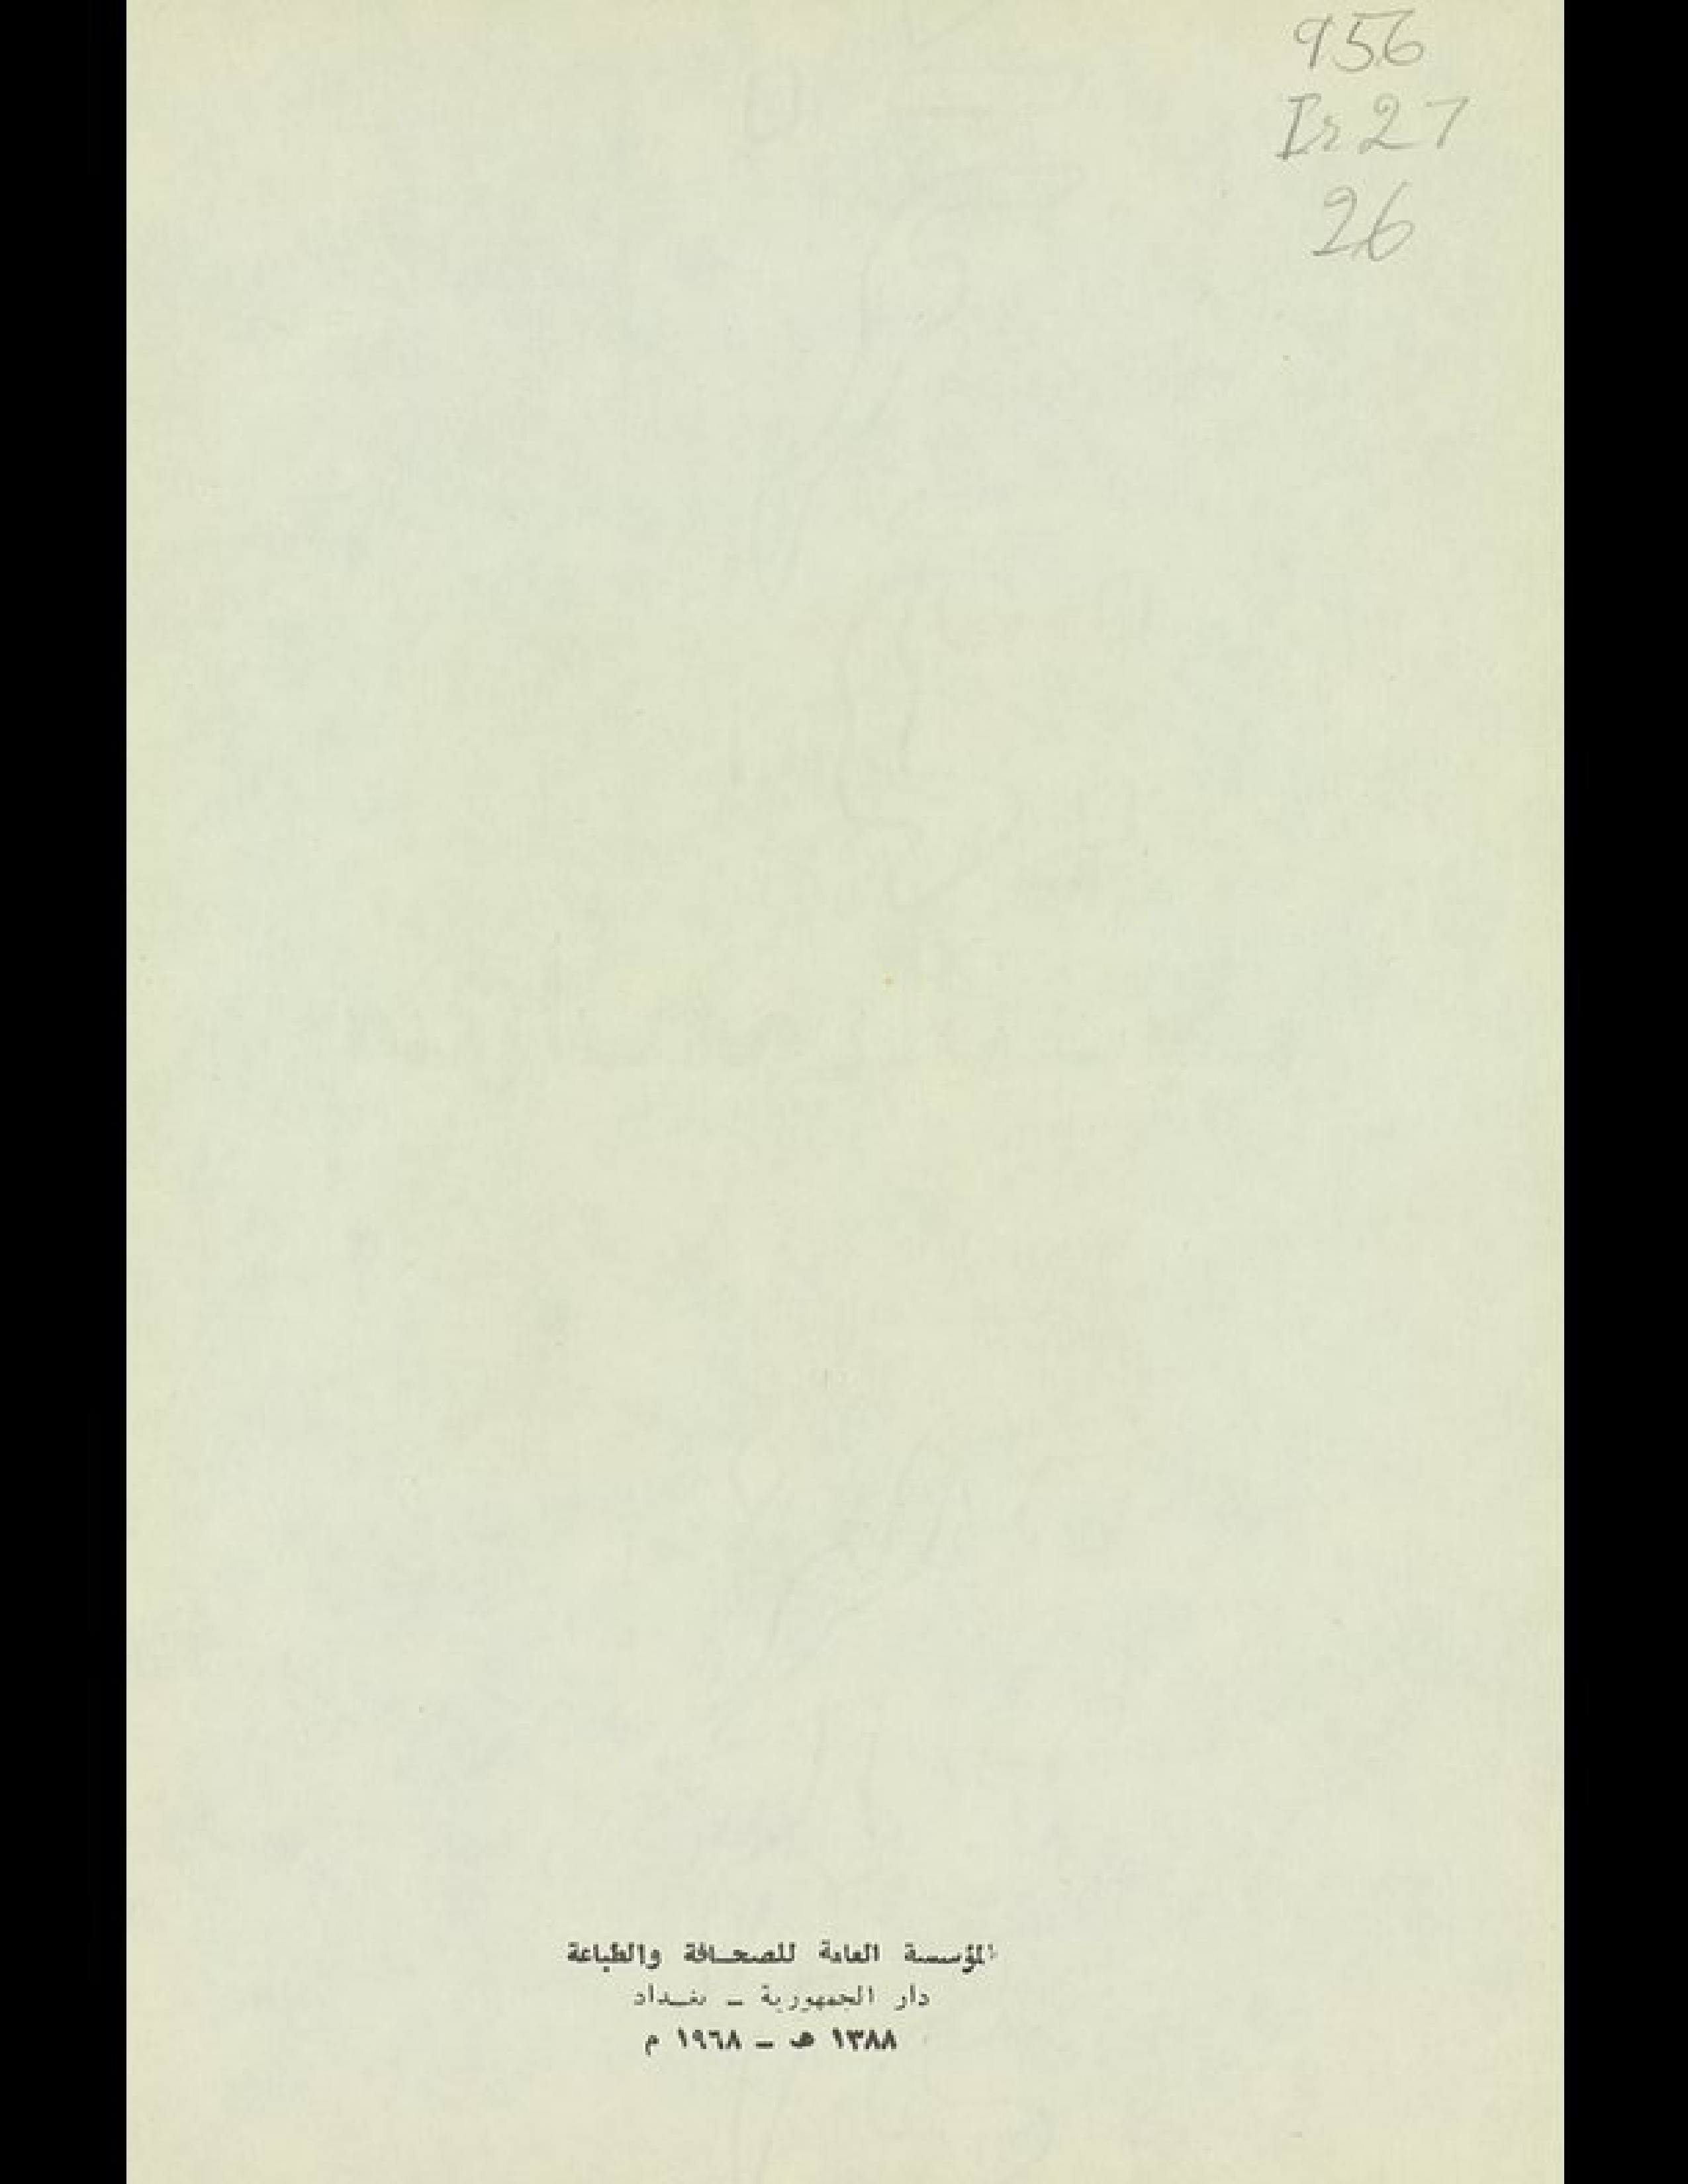 956
Ir 27
26
المؤسسة العامة للصحافة والطباعة
دار الجمهورية – بغداد
١٣٨٨ هـ – ١٩٦٨ م